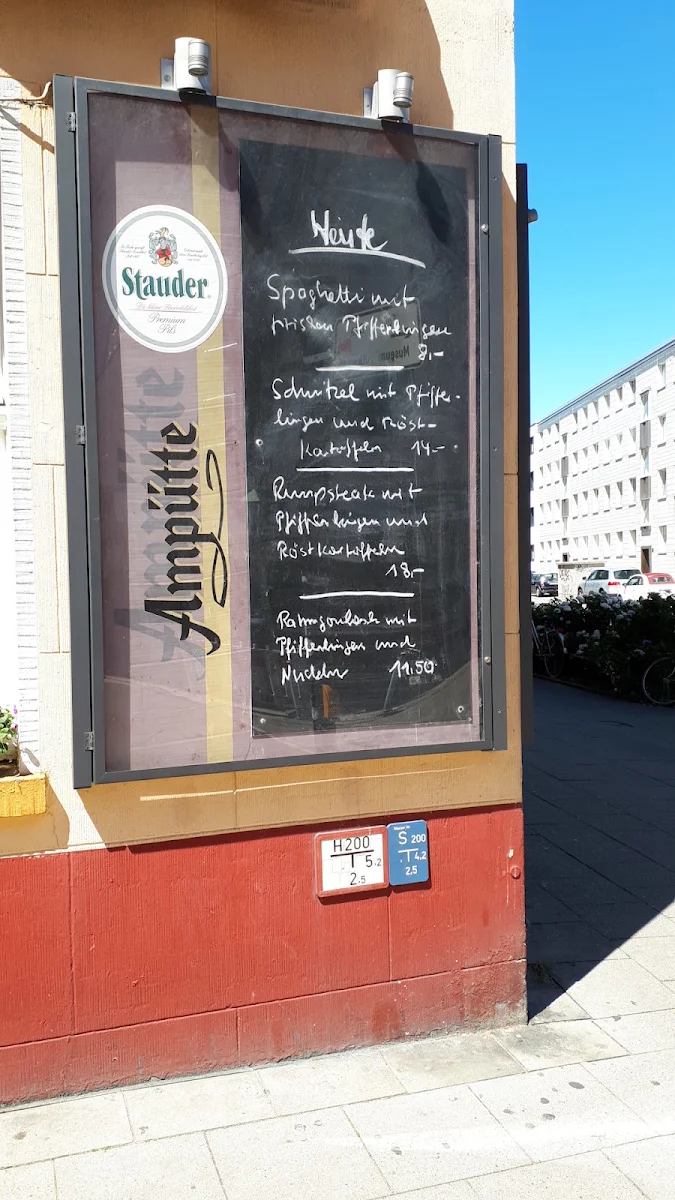 Stauder
Premium
Pils
Ampütte
Heute
Spaghetti mit
frischen Pfifferlingen
8,-
Schnitzel mit Pfiffer-
lingen und Röst-
Kartoffeln 14,-
Rumpsteak mit
Pfifferlingen und
Röstkartoffeln
18,-
Rahmgulasch mit
Pfifferlingen und
Nudeln 11,50
H200
T 5,2
2,5
S 200
T 4,2
2,5